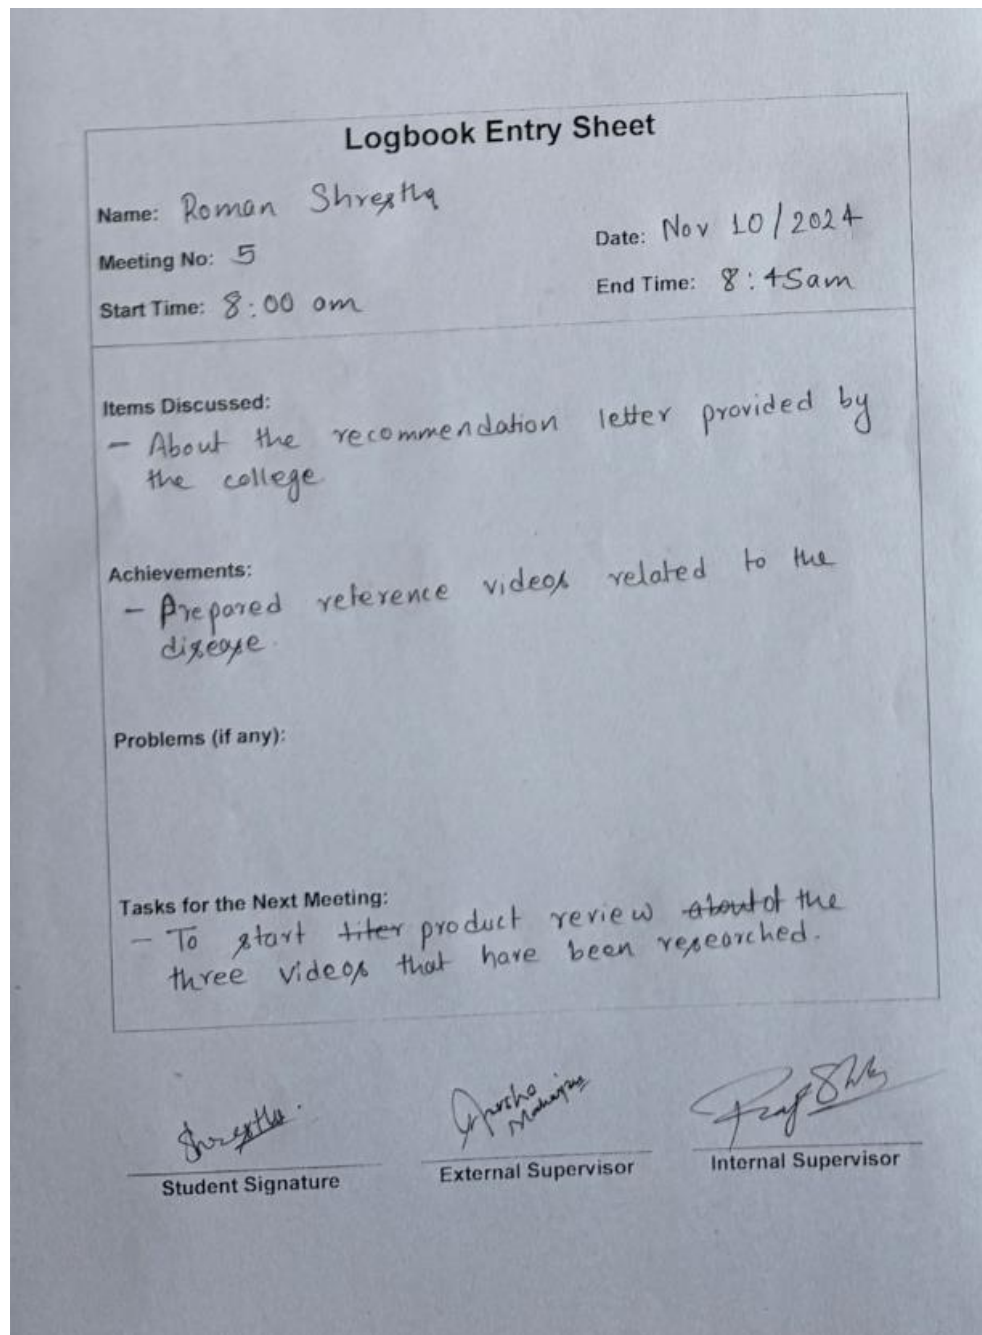 Logbook Entry Sheet
Name: Roman Shrestha
Date: Nov 10/2024
Meeting No: 5
End Time: 8:45am
Start Time: 8:00 am
Items Discussed:
- About the recommendation letter provided by
the college
Achievements:
- Prepared reference videos related to the
disease.
Problems (if any):
Tasks for the Next Meeting:
- To start product review about of the
three videos that have been researched.
Shrestha.
Maharjan
Student Signature
External Supervisor
Internal Supervisor